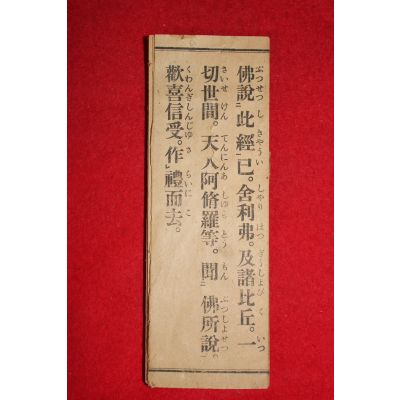 佛說此經已。舍利弗。及諸比丘。一
切世間。天人阿脩羅等。聞佛所說
歡喜信受。作禮而去。